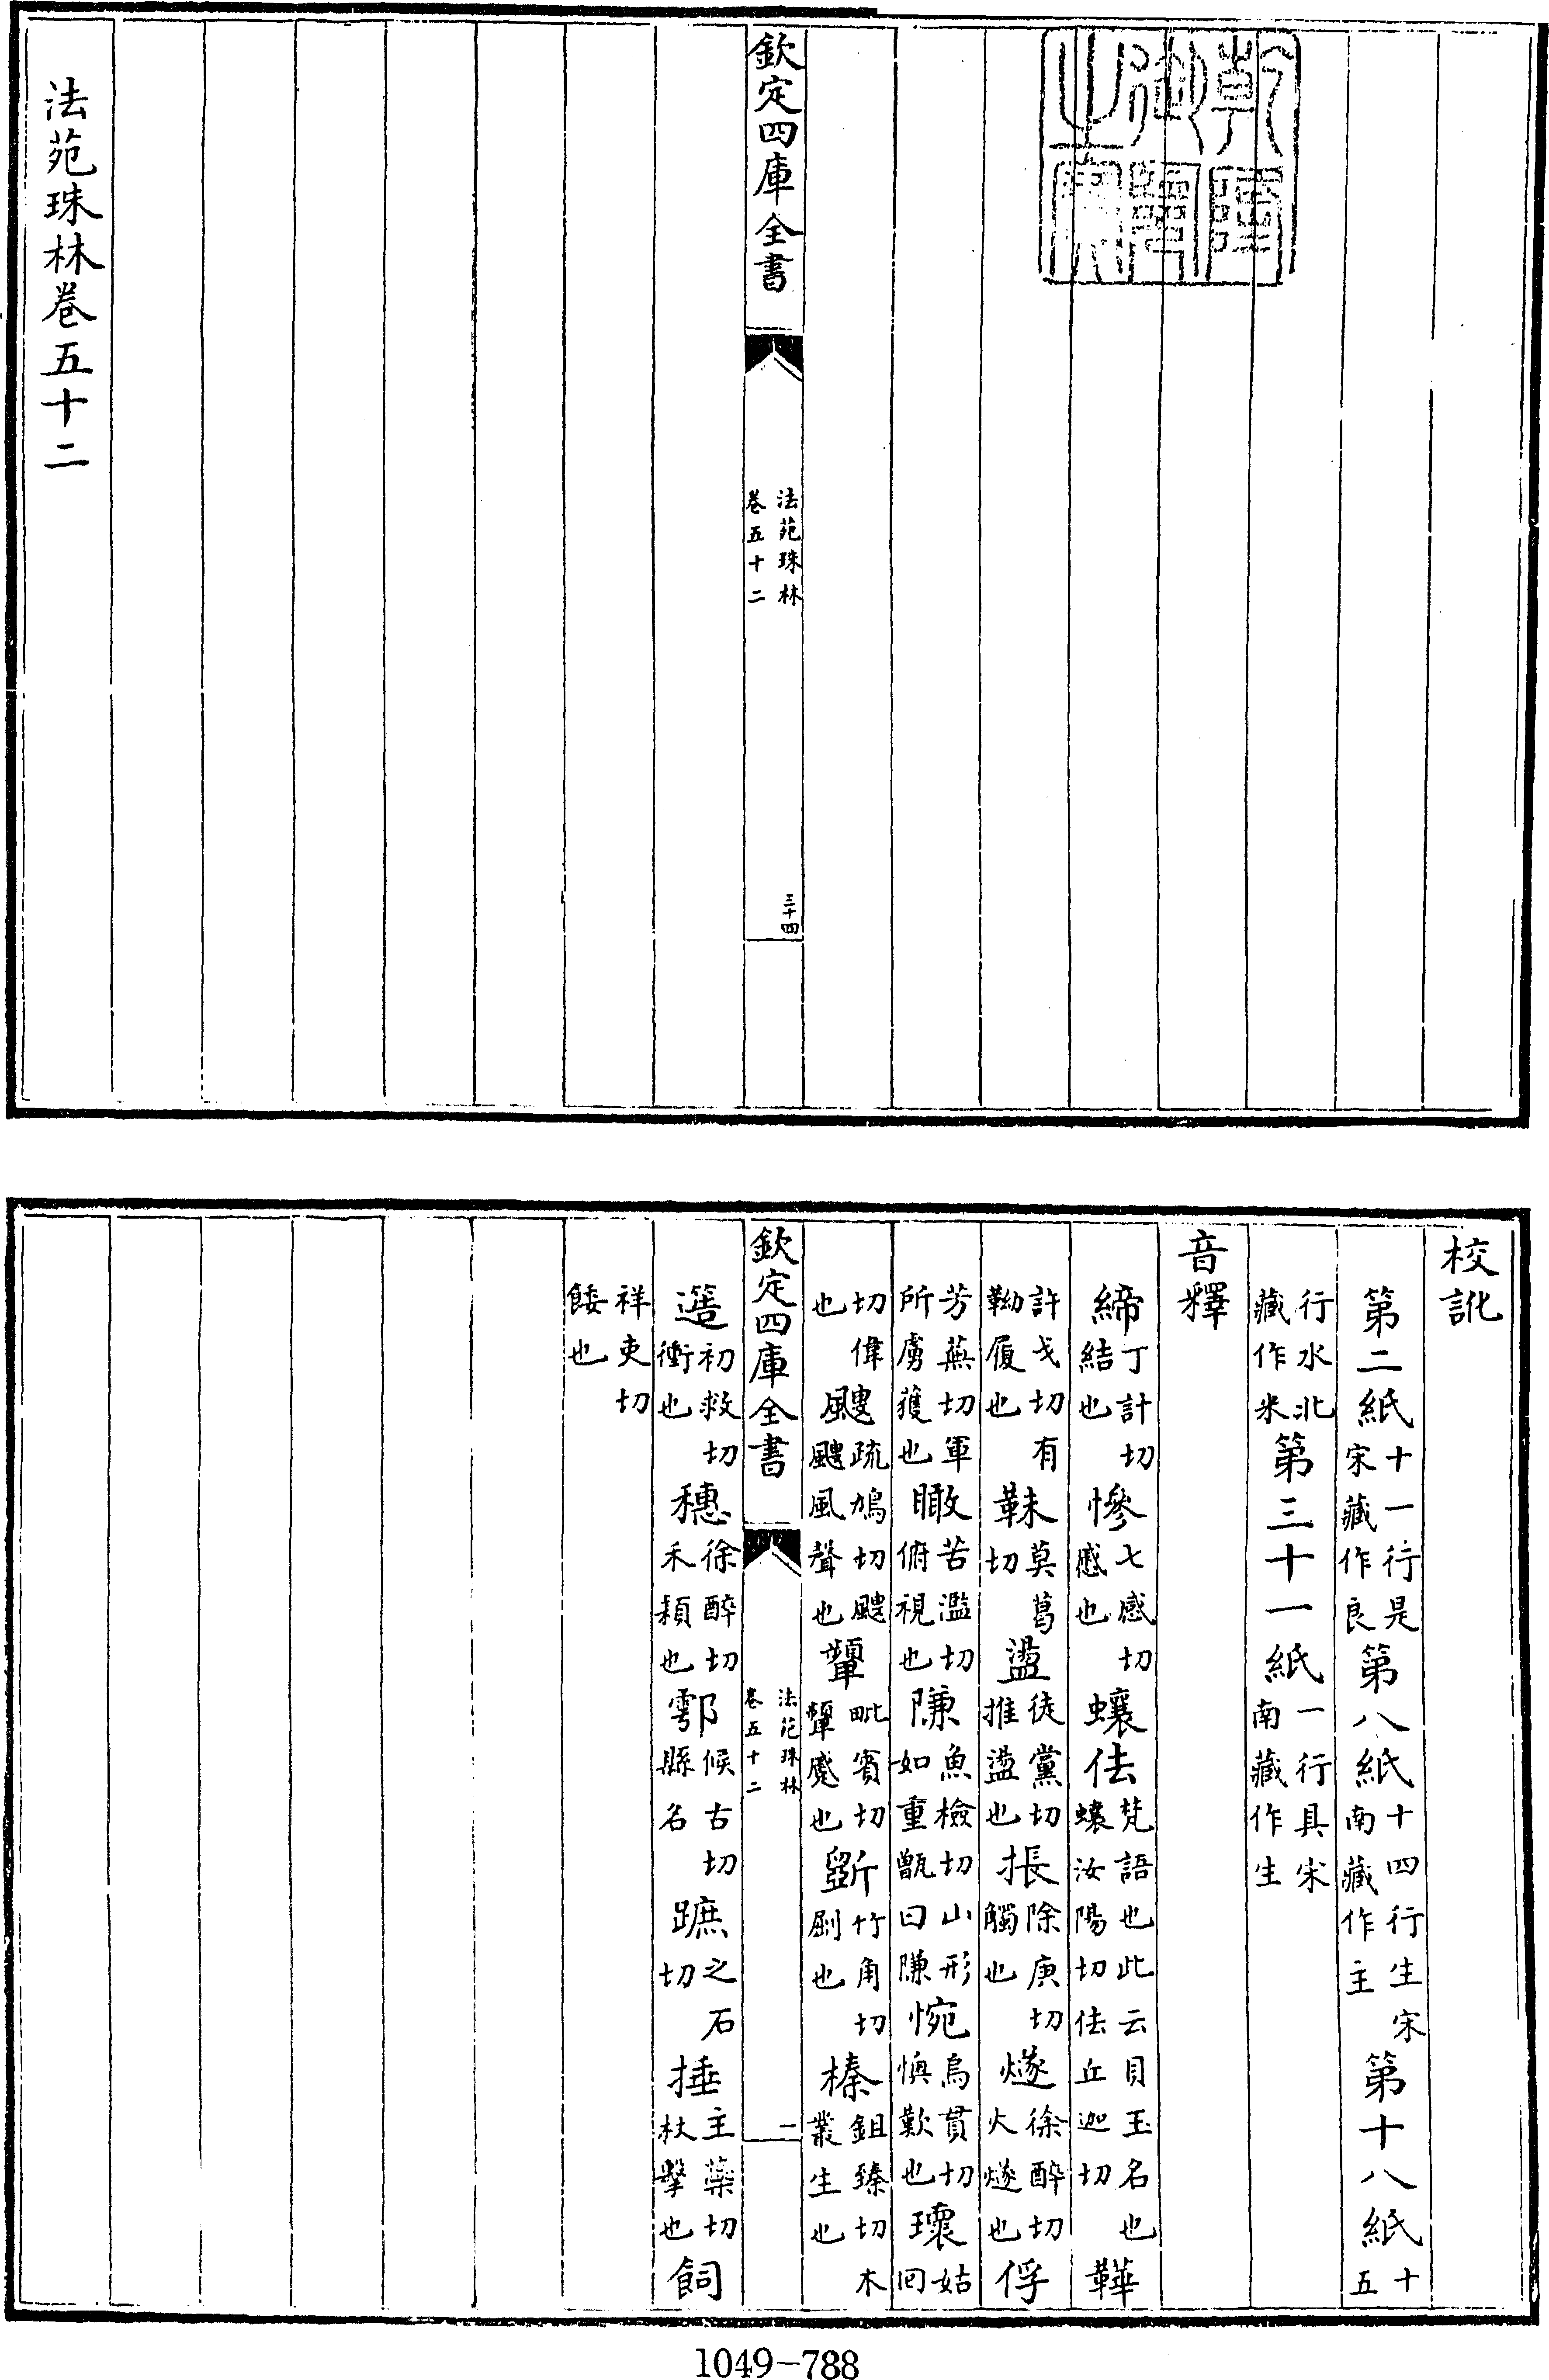 乾隆御覽之寶
欽定四庫全書
法苑珠林
卷五十二
三十四
法苑珠林卷五十二
校訛
第二紙十一行是宋藏作良第八紙十四行生宋南藏作主第十八紙十五
行水北藏作米第三十一紙一行具宋南藏作生
音釋
締丁計切結也慘七感切慼也蠰佉梵語也此云貝玉名也蠰汝陽切佉丘迦切鞾
許戈切有靿履也靺莫葛切盪徒黨切推盪也掁除庚切觸也燧徐醉切火燧也俘
芳蕪切軍所虜獲也瞰苦濫切俯視也隒魚檢切山形如重甑曰隒惋烏貫切懊歎也瓌姑回
切偉也颼疏鳩切颼颼風聲也顰毗賓切顰蹙也斲竹角切劚也榛鉏臻切木叢生也
欽定四庫全書
法苑珠林
卷五十二
二
簉初救切衝也穗徐醉切禾穎也鄠候古切縣名蹠之石切捶主蘂切杖擊也飼
祥吏切餧也
1049-788